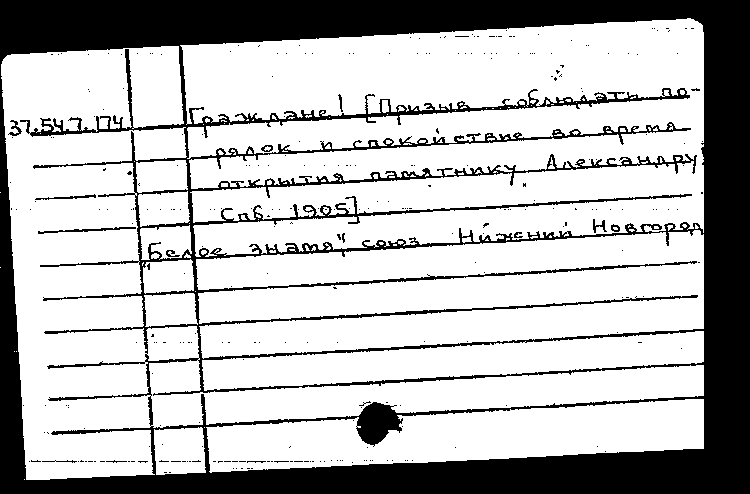 37.54.7.174 Граждане! [Призыв соблюдать по-
рядок и спокойствие во время
открытия памятнику Александру
Спб., 1905].
"Белое знамя", союз. Нижний Новгород